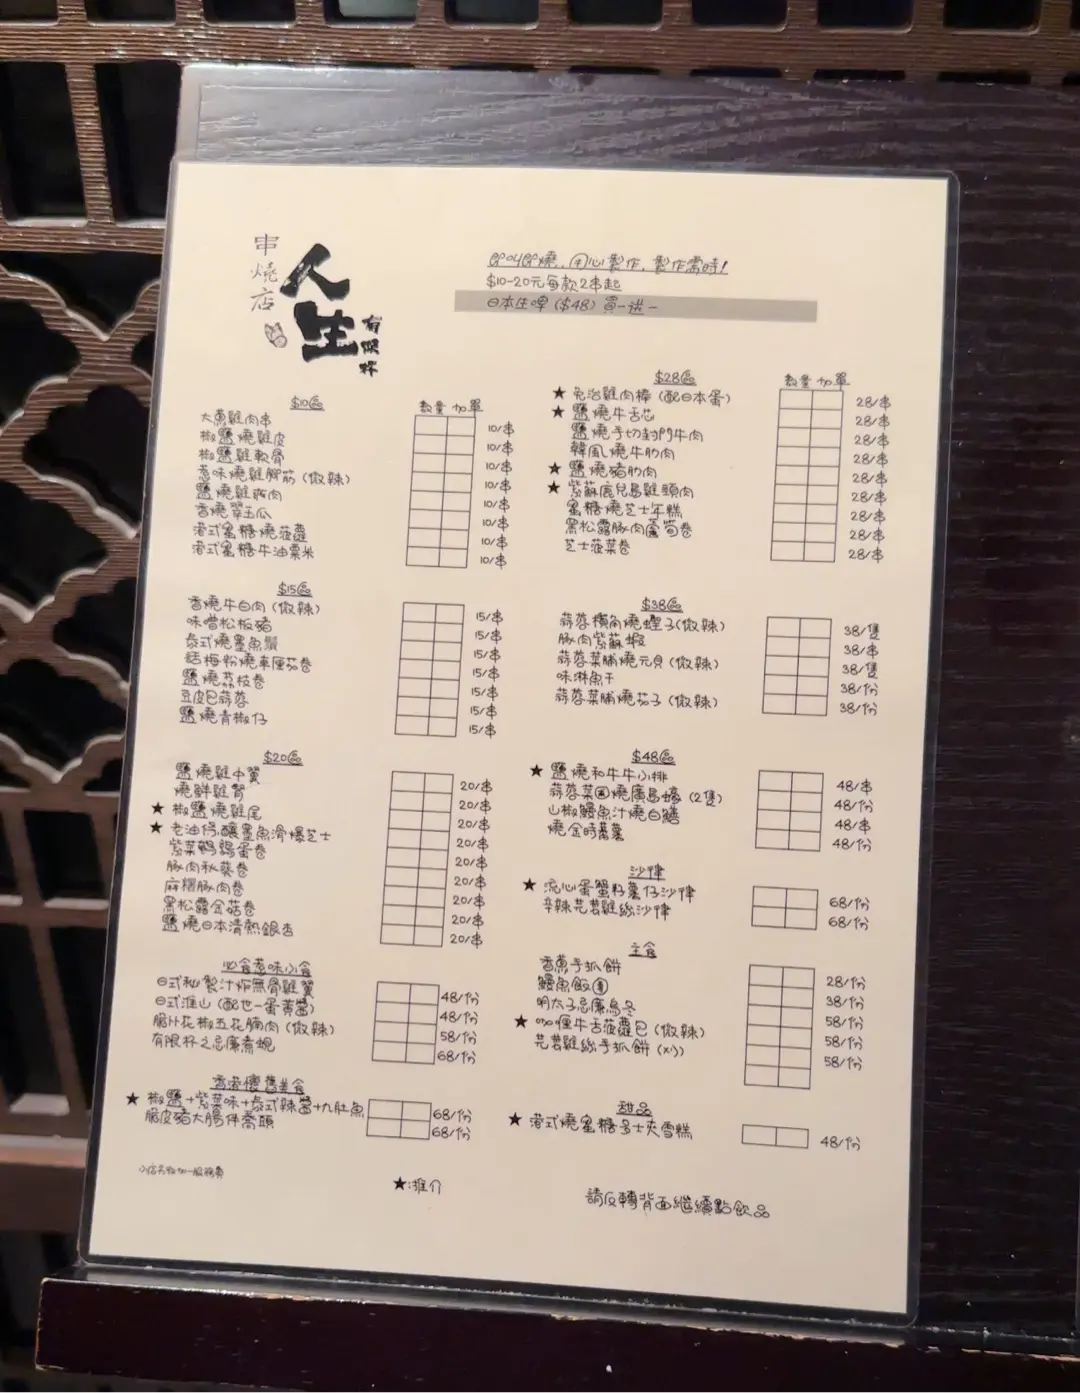 串燒店
人生
有限杯
即叫即燒,用心製作,製作需時!
$10-20元每款2串起
日本生啤($48)買一送一
$10區
數量 加單
大蔥雞肉串 10/串
椒鹽燒雞皮 10/串
椒鹽雞軟骨 10/串
惹味燒雞腳筋(微辣) 10/串
鹽燒雞 肉 10/串
香燒翠玉瓜 10/串
港式蜜糖燒菠蘿 10/串
港式蜜糖牛油粟米 10/串
$15區
香燒牛白肉(微辣) 15/串
味噌松板豬 15/串
泰式燒墨魚鬚 15/串
話梅粉燒車厘茄卷 15/串
鹽燒荔枝卷 15/串
豆皮包蒜蓉 15/串
鹽燒青椒仔 15/串
$20區
鹽燒雞中翼 20/串
燒鮮雞腎 20/串
★ 椒鹽燒雞尾 20/串
★ 老油條釀墨魚滑爆芝士 20/串
紫菜鵪鶉蛋卷 20/串
豚肉秋葵卷 20/串
麻糬豚肉卷 20/串
黑松露金菇卷 20/串
鹽燒日本清熱銀杏 20/串
必食惹味小食
日式秘製汁炸無骨雞翼 48/份
日式淮山(配世一蛋黃醬) 48/份
脆卜花椒五花腩肉(微辣) 58/份
有限杯之忌廉煮蜆 68/份
香港懷舊美食
★ 椒鹽+紫菜味+泰式辣醬+九肚魚 68/份
脆皮豬大腸伴蕎頭 68/份
小店另收加一服務費
★:推介
$28區
數量 加單
★ 免治雞肉棒(配日本蛋) 28/串
★ 鹽燒牛舌芯 28/串
鹽燒手切封門牛肉 28/串
韓風燒牛肋肉 28/串
★ 鹽燒豬肋肉 28/串
★ 紫蘇鹿兒島雞頸肉 28/串
蜜糖燒芝士年糕 28/串
黑松露豚肉蘆筍卷 28/串
芝士菠菜卷 28/串
$38區
蒜蓉欖角燒蟶子(微辣) 38/隻
豚肉紫蘇蝦 38/串
蒜蓉菜脯燒元貝(微辣) 38/隻
味淋魚干 38/份
蒜蓉菜脯燒茄子(微辣) 38/份
$48區
★ 鹽燒和牛牛小排 48/串
蒜蓉菜圃燒廣島蠔(2隻) 48/份
山椒鰻魚汁燒白鱔 48/串
燒金時蕃薯 48/份
沙律
★ 流心蛋蟹籽薯仔沙律 68/份
辛辣芫荽雞絲沙律 68/份
主食
香蔥手抓餅 28/份
鰻魚飯團 38/份
明太子忌廉烏冬 58/份
★ 咖喱牛舌菠蘿包(微辣) 58/份
芫荽雞絲手抓餅(凍) 58/份
甜品
★ 港式燒蜜糖多士夾雪糕 48/份
請反轉背面繼續點飲品